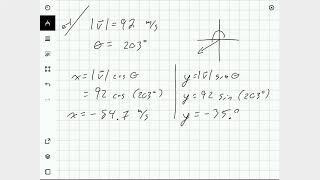 a) |v⃗| = 92 m/s
θ = 203°
x = |v⃗| cos θ
= 92 cos (203°)
x = -84.7 m/s
y = |v⃗| sin θ
y = 92 sin (203°)
y = -35.9